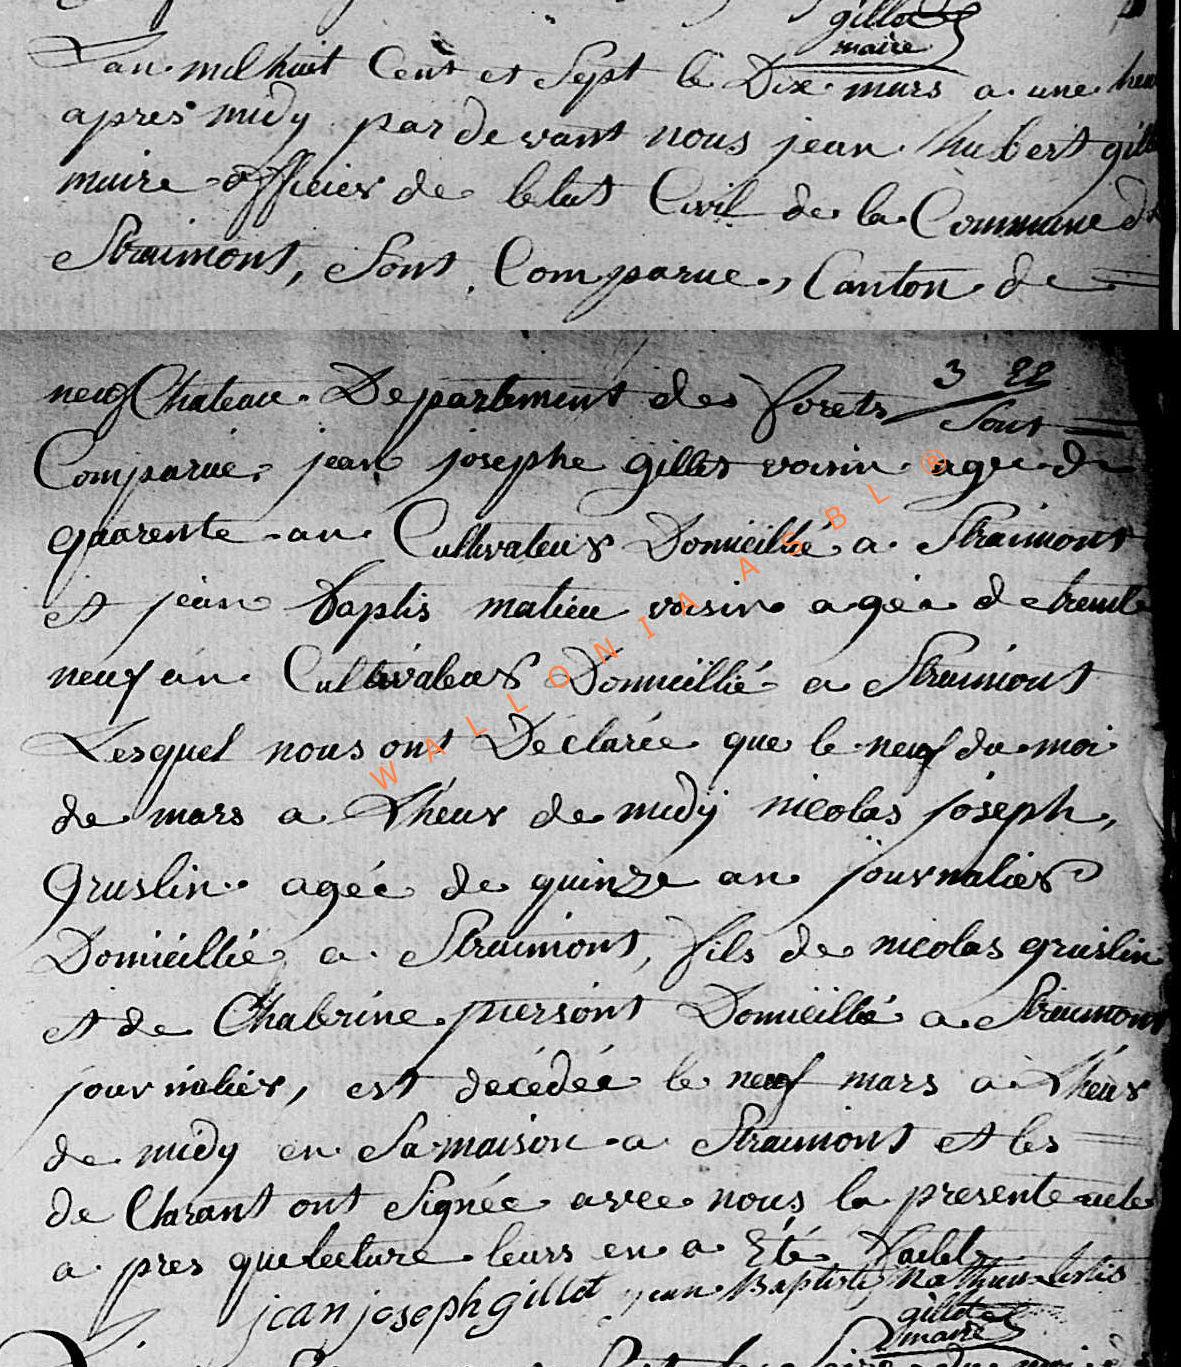 gillet
maire
Lan mil huit Cent et Sept le Dix mars a une heu
apres midy par devant nous jean hubert gill
maire officier de letat Civil de la Commune de
Straimont, Sont Comparue, Canton de
neufChateau Departement des forets 3 22
Sont
Comparue jean josephe gillet voisin agee de
quarente an Cultivateur Domicillié a Straimont
et jean baptis matieu voisin agée de trente
neuf an Cultivateur Domicillié a Straimont
Lesquel nous ont Déclarée que le neuf du moi
de mars a Lheur de midy nicolas joseph,
Gruslin agée de quinze an journalier
Domicillié a Straimont, fils de nicolas gruslin
et de Chatrine piersont Domicillié a Straimont
journalier, est decédée le neuf mars a Lheur
de midy en Sa maison a Straimont et les
de Clarant ont Signée avec nous la presente acte
a pres que lecture leurs en a Eté faitte
jean joseph gillot jean Baptiste Mathieu
gillet
maire
WALLONIA ASBL ®